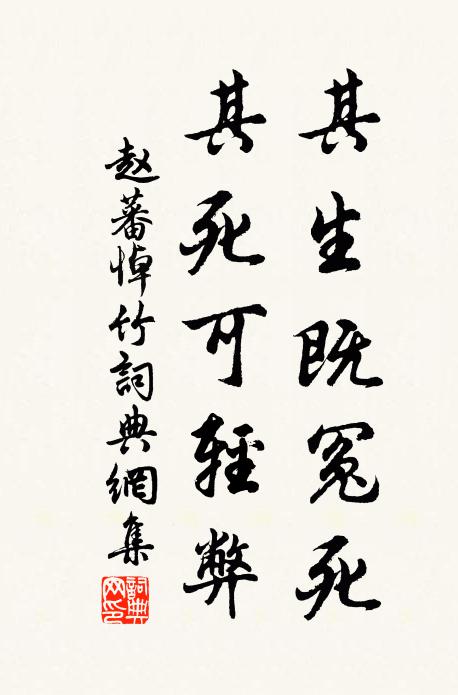 其生既冤死
其死可輕弊
赵蕃悼竹詞典網集
詞典网印